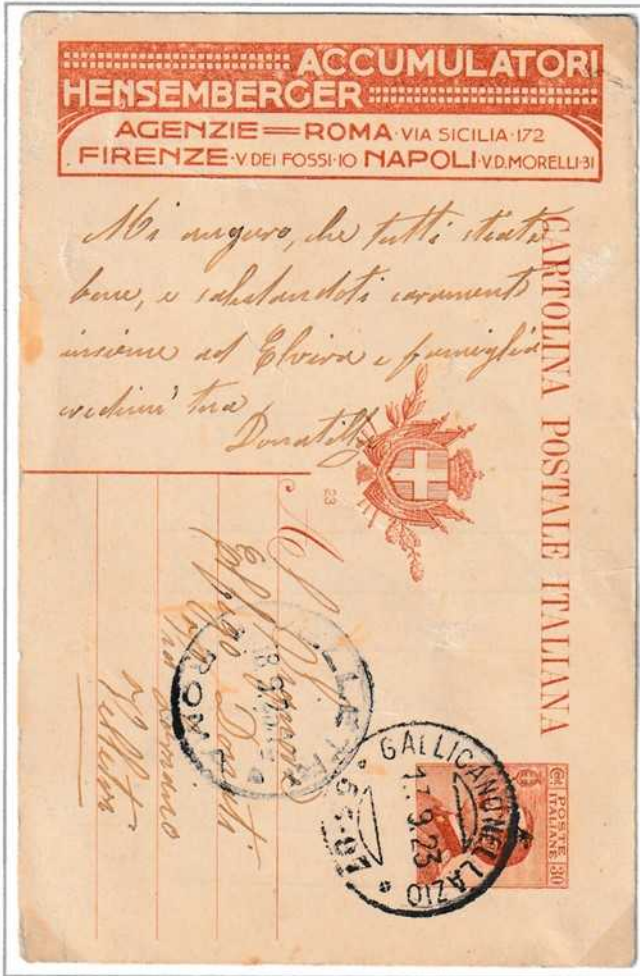 ACCUMULATORI
HENSEMBERGER
AGENZIE=ROMA·VIA SICILIA·172
FIRENZE·V.DEI FOSSI·10 NAPOLI·V.D.MORELLI·31
Mi auguro, che tutti state
bene, e salutandoti caramente
insieme ad Elvira e famiglia
credimi tua
Donatella
CARTOLINA POSTALE ITALIANA
23
Al Signor
Donati
Velletri
ROMA
GALLICANO NEL LAZIO
17.9.23
POSTE
ITALIANE
Cent 30